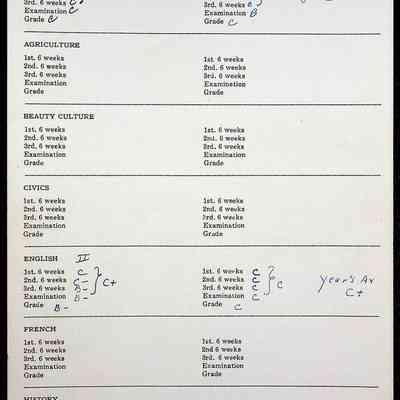 3rd. 6 weeks C 3rd. 6 weeks B
Examination C Examination B
Grade C Grade C
AGRICULTURE
1st. 6 weeks 1st. 6 weeks
2nd. 6 weeks 2nd. 6 weeks
3rd. 6 weeks 3rd. 6 weeks
Examination Examination
Grade Grade
BEAUTY CULTURE
1st. 6 weeks 1st. 6 weeks
2nd. 6 weeks 2nd. 6 weeks
3rd. 6 weeks 3rd. 6 weeks
Examination Examination
Grade Grade
CIVICS
1st. 6 weeks 1st. 6 weeks
2nd. 6 weeks 2nd. 6 weeks
3rd. 6 weeks 3rd. 6 weeks
Examination Examination
Grade Grade
ENGLISH II
1st. 6 weeks C 1st. 6 weeks C
2nd. 6 weeks C- C+ 2nd. 6 weeks C C Year's Av
3rd. 6 weeks B- 3rd. 6 weeks C C+
Examination B- Examination C
Grade B- Grade C
FRENCH
1st. 6 weeks 1st. 6 weeks
2nd. 6 weeks 2nd 6 weeks
3rd. 6 weeks 3rd. 6 weeks
Examination Examination
Grade Grade
HISTORY